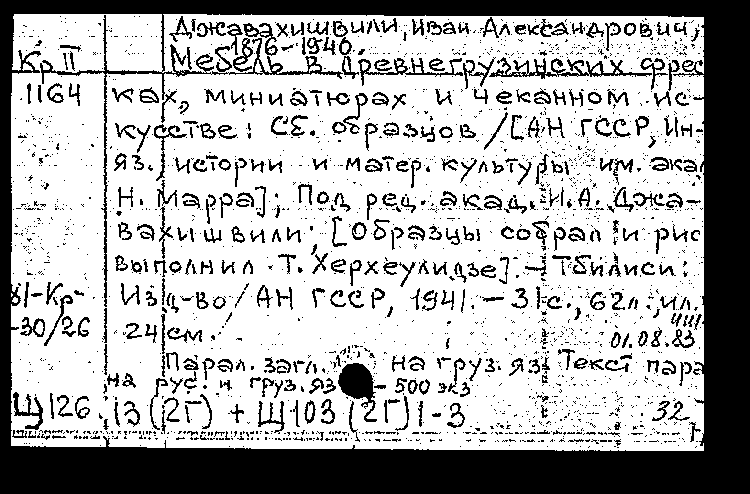 Джавахишвили, Иван Александрович,
1876-1940.
Кр II Мебель в древнегрузинских фрес
1164 ках, миниатюрах и чеканном ис-
кусстве: Сб. образцов / [АН ГССР, Ин-
яз., истории и матер. культуры им. ака
Н. Марра]; Под ред. акад. И.А. Джа-
вахишвили; [Образцы собрал и рис
выполнил Т. Херхеулидзе] - Тбилиси:
81-Кр- Изд-во / АН ГССР, 1941. - 31с., 62л., ил.
-30/26 24 см. 01.08.83
Парал. загл. на груз. яз. Текст пара
на рус. и груз. яз - 500 экз
Щ126.13 (2Г) + Щ103 (2Г)1-3 32